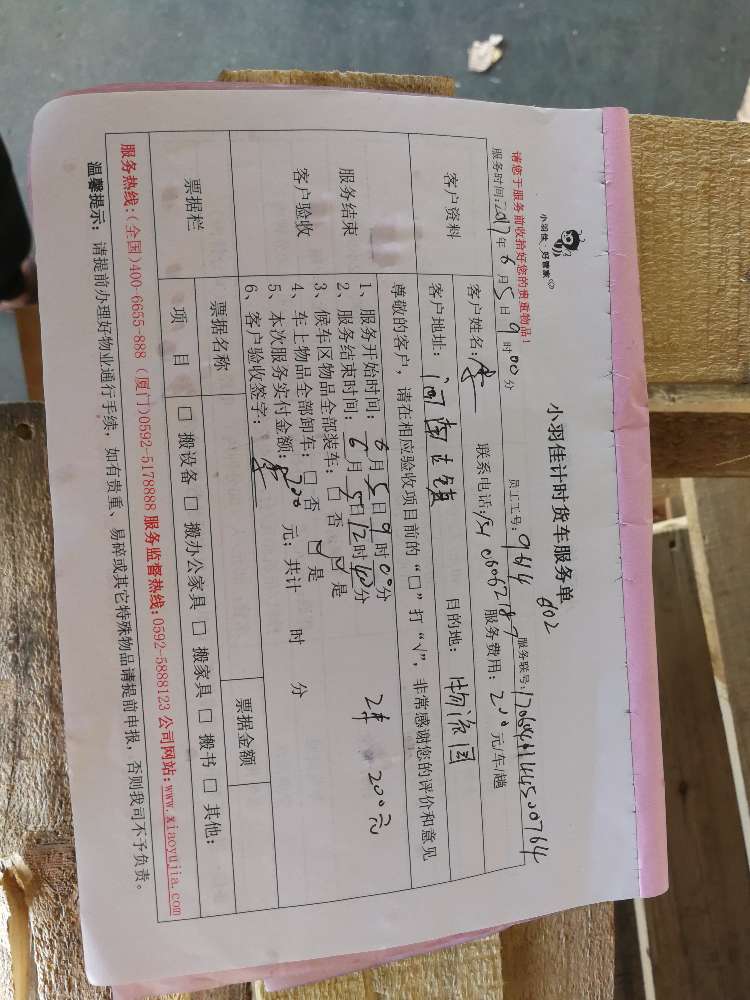 小羽佳 好管家
小羽佳计时货车服务单
602
请您于服务前收拾好您的贵重物品!
员工工号:9614 服务联号:
服务时间:2017年6月5日9时00分
客户资料
客户姓名:李 联系电话: 服务费用:200元/车/趟
客户地址: 目的地:物流园
尊敬的客户,请在相应验收项目前的“□”打“√”,非常感谢您的评价和意见
服务结束
客户验收
1、服务开始时间:6月5日9时00分
2、服务结束时间:6月5日12时00分
3、候车区物品全部装车:□ 否 ☑ 是
4、车上物品全部卸车:□ 否 ☑ 是
5、本次服务实付金额:200元;共计 时 分
6、客户验收签字:李
2车 200元
票据栏
票据名称 票据金额
项 目 □ 搬设备 □ 搬办公家具 □ 搬家具 □ 搬书 □ 其他:
服务热线:(全国)400-6655-888 (厦门)0592-5178888 服务监督热线:0592-5888123 公司网站:www.xiaoyujia.com
温馨提示: 请提前办理好物业通行手续,如有贵重、易碎或其它特殊物品请提前申报,否则我司不予负责。